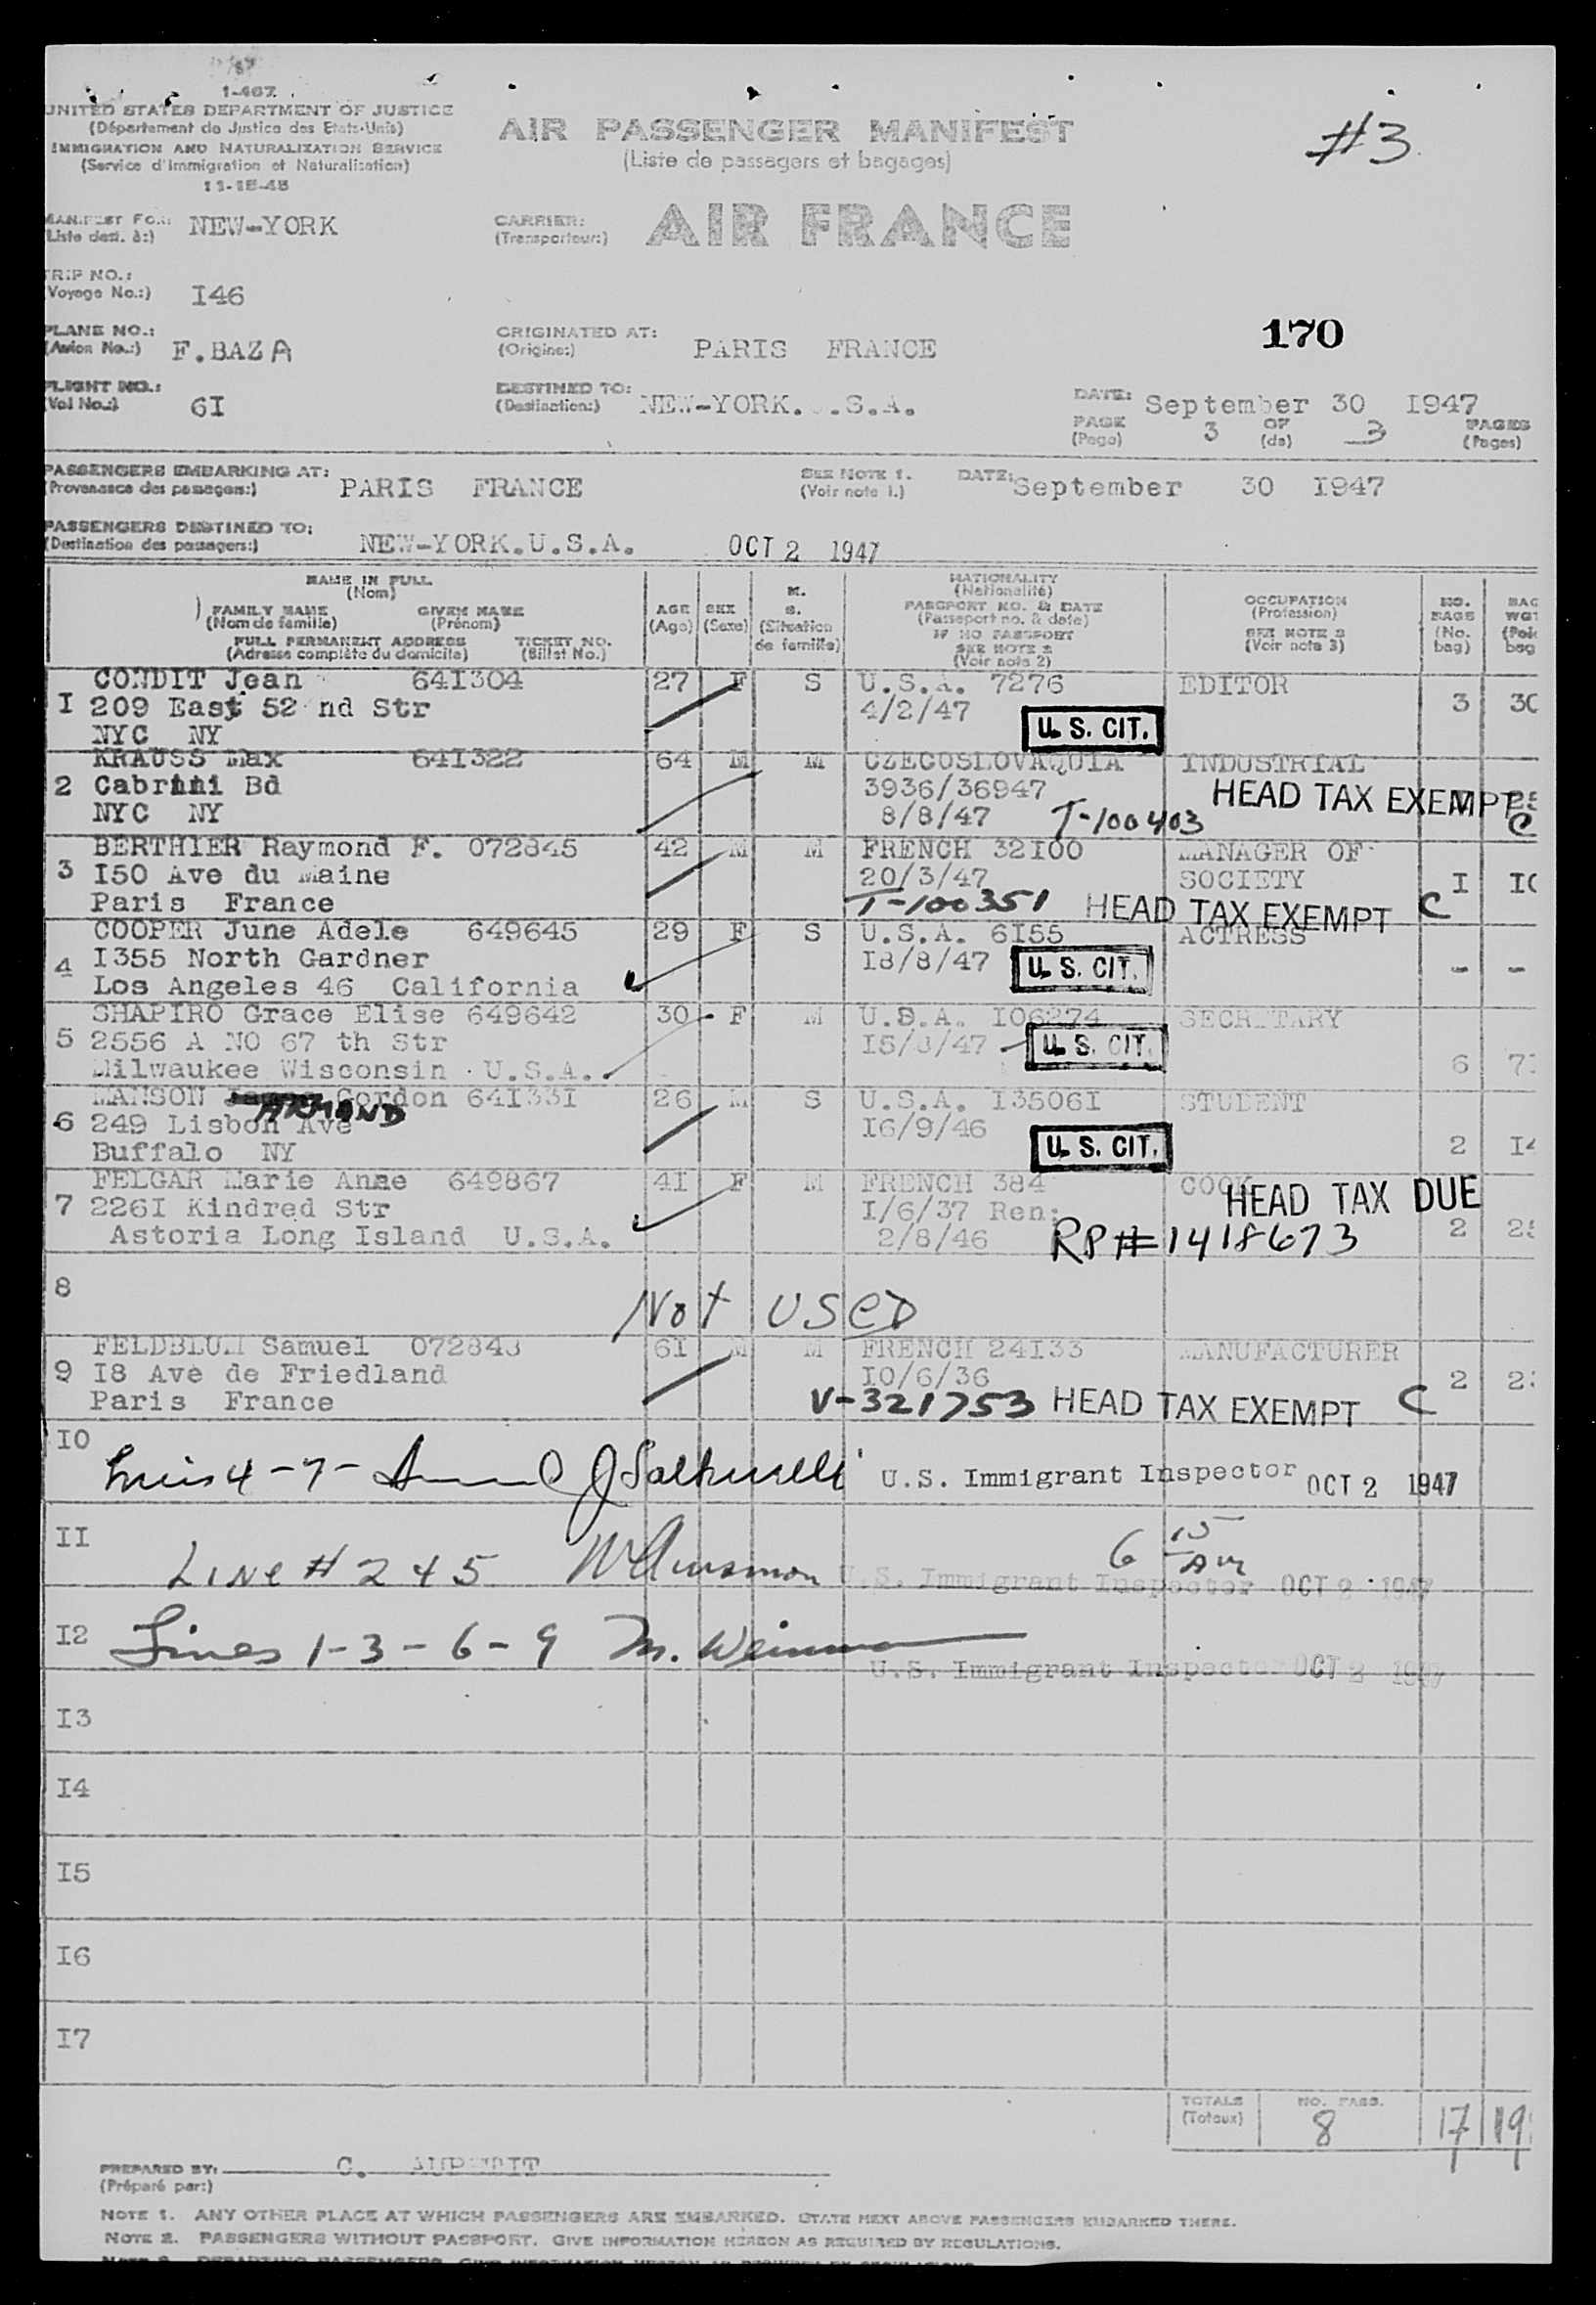 1-467
UNITED STATES DEPARTMENT OF JUSTICE
(Département de Justice des Etats-Unis)
IMMIGRATION AND NATURALIZATION SERVICE
(Service d'Immigration et Naturalisation)
11-15-45
AIR PASSENGER MANIFEST
(Liste de passagers et bagages)
#3
MANIFEST FOR: NEW-YORK
(Liste dest. à:)
CARRIER: AIR FRANCE
(Transporteur:)
TRIP NO.:
(Voyage No.:) I46
PLANE NO.:
(Avion No.:) F.BAZA
ORIGINATED AT:
(Origine:) PARIS FRANCE
170
FLIGHT NO.:
(Vol No.:) 6I
DESTINED TO:
(Destination:) NEW-YORK. .S.A.
DATE: September 30 I947
PAGE 3 OF 3 PAGES
(Page) (de) (Pages)
PASSENGERS EMBARKING AT:
(Provenance des passagers:) PARIS FRANCE
SEE NOTE 1.
(Voir note 1.)
DATE: September 30 I947
PASSENGERS DESTINED TO:
(Destination des passagers:) NEW-YORK.U.S.A. OCT 2 1947
NAME IN FULL
(Nom)
FAMILY NAME GIVEN NAME
(Nom de famille) (Prénom)
FULL PERMANENT ADDRESS TICKET NO.
(Adresse complète du domicile) (Billet No.)
AGE
(Age)
SEX
(Sexe)
M.
S.
(Situation
de famille)
NATIONALITY
(Nationalité)
PASSPORT NO. & DATE
(Passeport no. & date)
IF NO PASSPORT
SEE NOTE 2
(Voir note 2)
OCCUPATION
(Profession)
SEE NOTE 3
(Voir note 3)
NO.
BAGS
(No.
bag)
BAG
WGT
(Poid
bag
CONDIT Jean 64I304 27 F S U.S.A. 7276 EDITOR
I 209 East 52 nd Str 4/2/47 3 30
NYC NY U. S. CIT.
KRAUSS Max 64I322 64 M M CZECOSLOVAQUIA INDUSTRIAL
2 Cabrini Bd 3936/36947 HEAD TAX EXEMPT
NYC NY 8/8/47 T-100403 C
BERTHIER Raymond F. 072845 42 M M FRENCH 32I00 MANAGER OF
3 I50 Ave du Maine 20/3/47 SOCIETY I I0
Paris France T-100351 HEAD TAX EXEMPT C
COOPER June Adele 649645 29 F S U.S.A. 6I55 ACTRESS
4 I355 North Gardner I8/8/47 U. S. CIT. - -
Los Angeles 46 California
SHAPIRO Grace Elise 649642 30 F M U.S.A. I06274 SECRETARY
5 2556 A NO 67 th Str I5/ /47 U. S. CIT.
Milwaukee Wisconsin U.S.A. 6 7
MANSON Gordon 64I33I 26 M S U.S.A. I3506I STUDENT
ARMAND
6 249 Lisbon Ave I6/9/46
Buffalo NY U. S. CIT. 2 I4
FELGAR Marie Anne 649867 4I F M FRENCH 384 COOK
7 226I Kindred Str I/6/37 Ren: HEAD TAX DUE
Astoria Long Island U.S.A. 2/8/46 RP#1418673 2 2
8 Not USED
FELDBLUM Samuel 07284 6I M M FRENCH 24I33 MANUFACTURER
9 I8 Ave de Friedland I0/6/36 2 2
Paris France V-321753 HEAD TAX EXEMPT C
I0
4-7- U.S. Immigrant Inspector OCT 2 1947
II 6 15 AM
LINE # 2 4 5 U.S. Immigrant Inspector OCT 2 1947
I2 Lines 1-3-6-9 M.
U.S. Immigrant Inspector OCT 2 1947
I3
I4
I5
I6
I7
TOTALS NO. PASS.
(Totaux) 8 17 19
PREPARED BY: C.
(Préparé par:)
NOTE 1. ANY OTHER PLACE AT WHICH PASSENGERS ARE EMBARKED. STATE NEXT ABOVE PASSENGERS EMBARKED THERE.
NOTE 2. PASSENGERS WITHOUT PASSPORT. GIVE INFORMATION HEREON AS REQUIRED BY REGULATIONS.